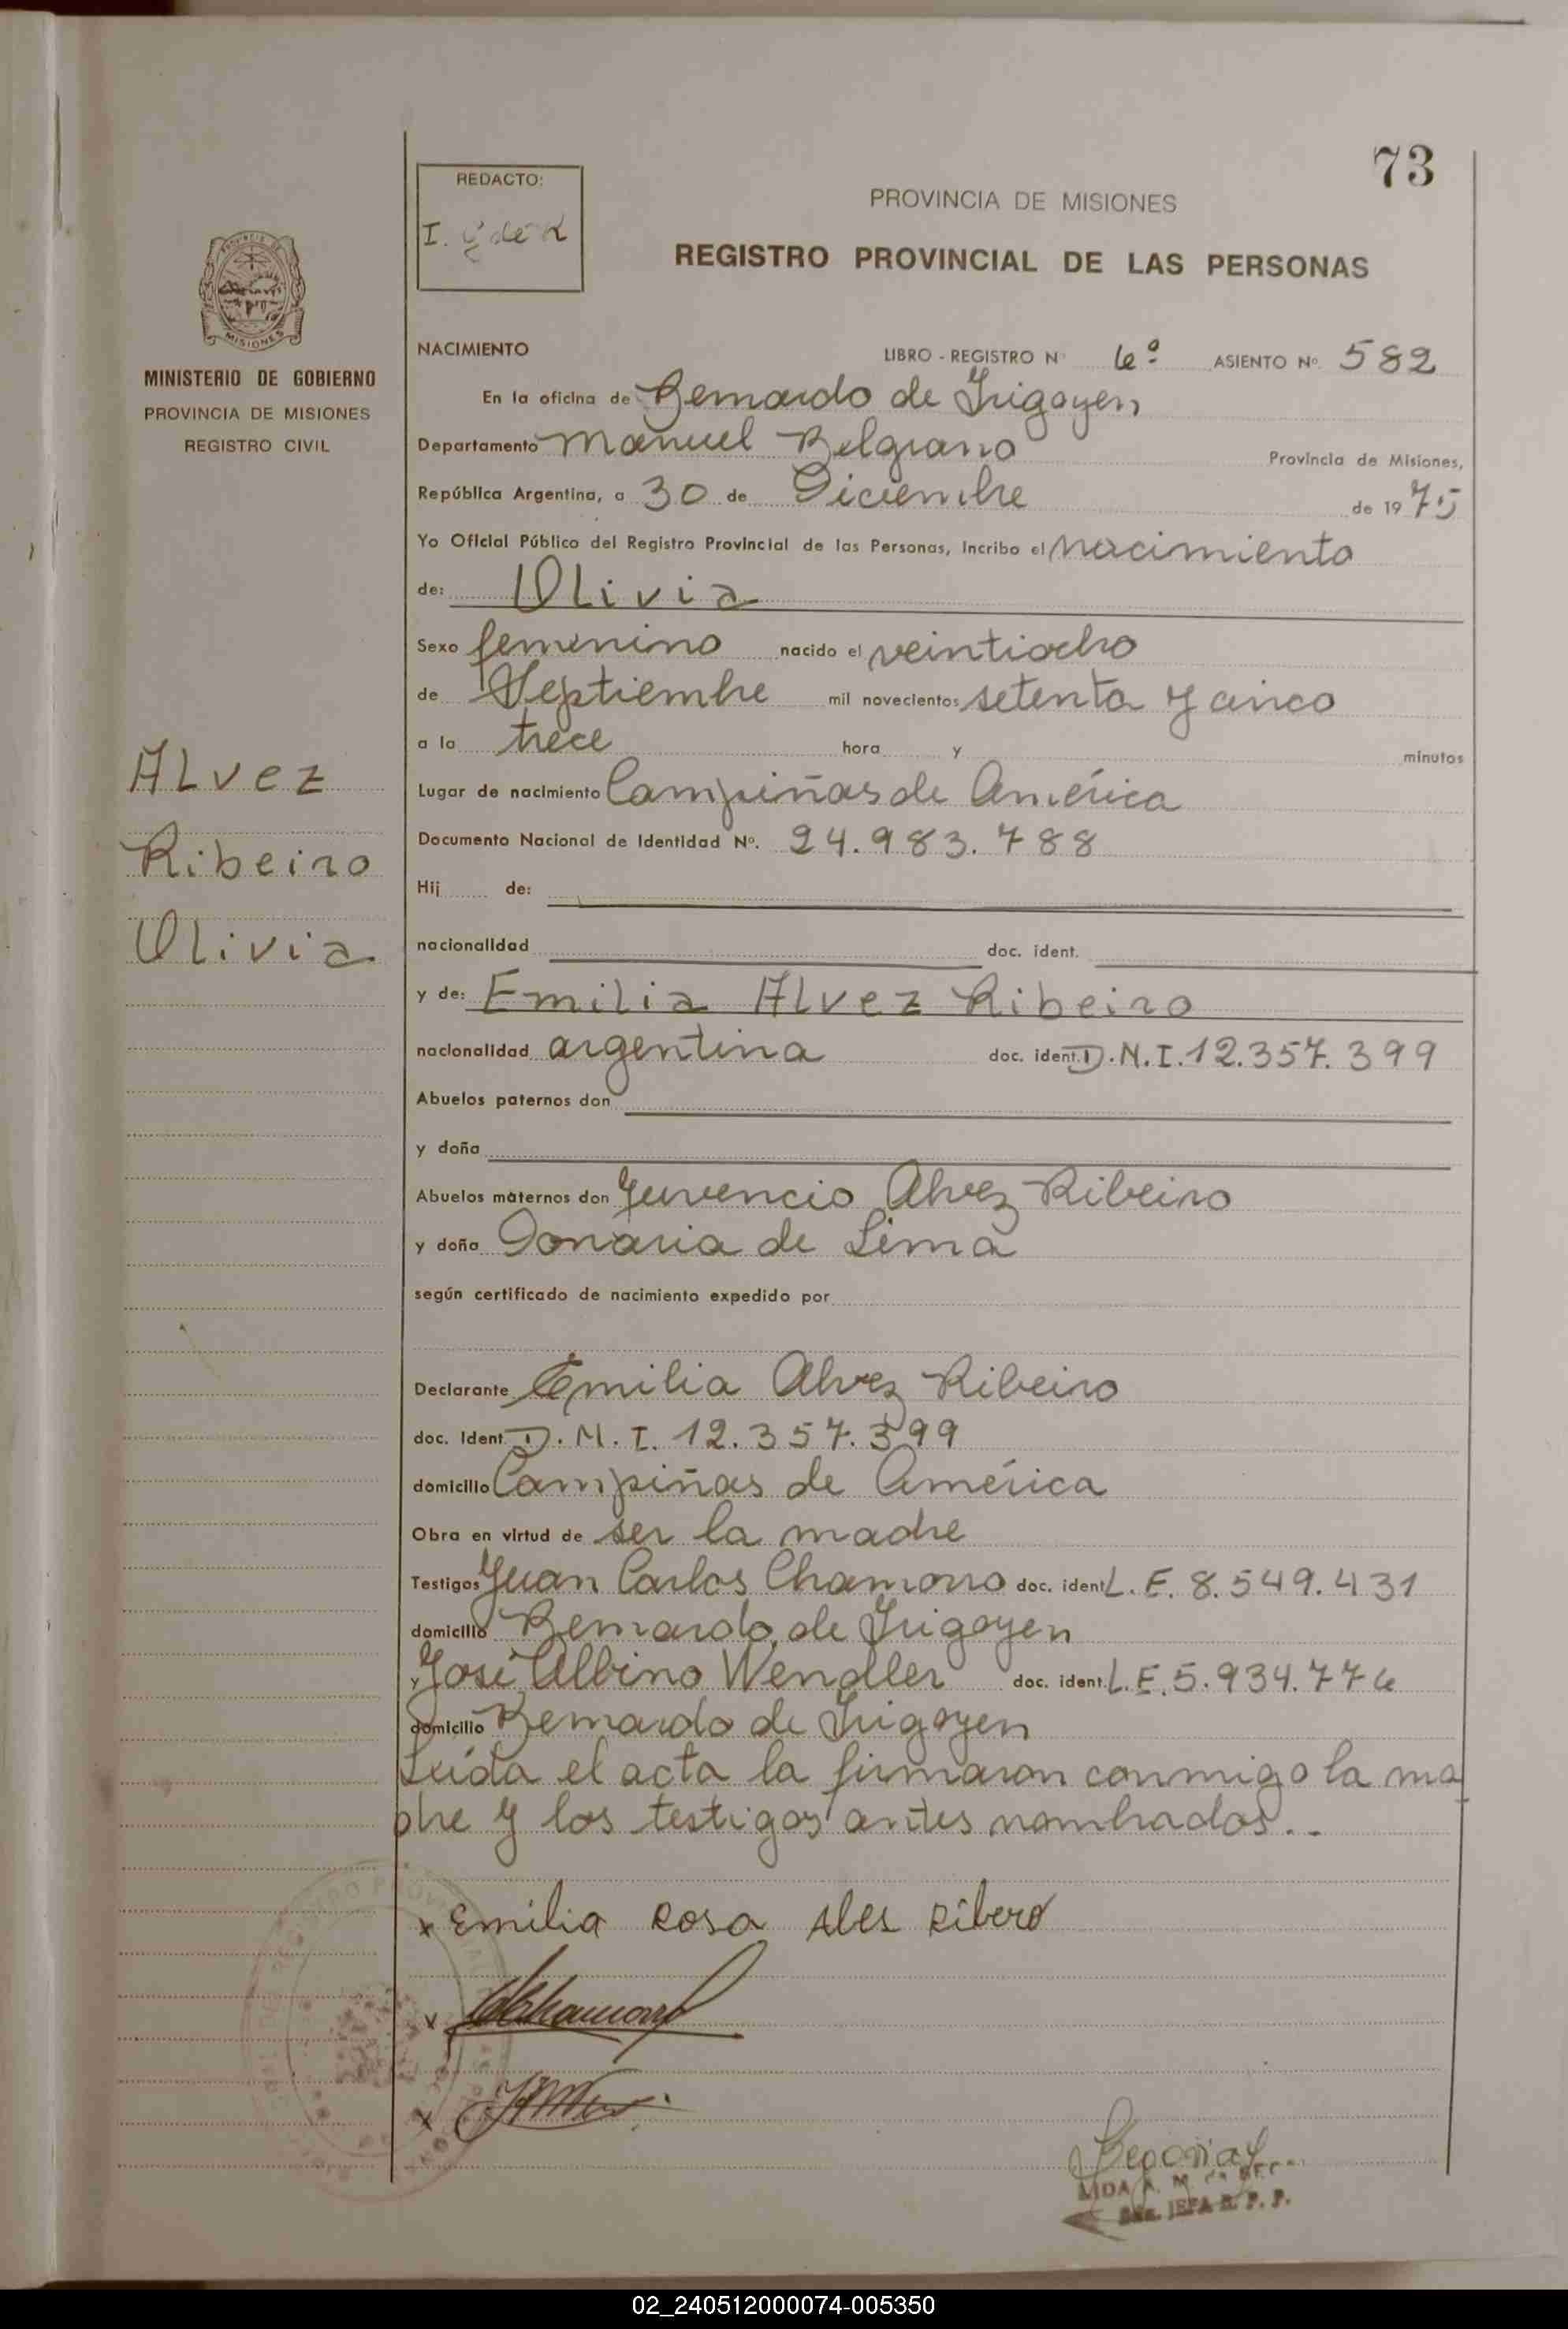 73
REDACTO:
PROVINCIA DE MISIONES
REGISTRO PROVINCIAL DE LAS PERSONAS
MISIONES
MINISTERIO DE GOBIERNO
PROVINCIA DE MISIONES
REGISTRO CIVIL
Alvez
Ribeiro
Olivia
NACIMIENTO LIBRO - REGISTRO Nº 6º ASIENTO Nº. 582
En la oficina de Bernardo de Irigoyen
Departamento Manuel Belgrano Provincia de Misiones,
República Argentina, a 30 de Diciembre de 1975
Yo Oficial Público del Registro Provincial de las Personas, incribo el nacimiento
de: Olivia
Sexo femenino nacido el veintiocho
de Septiembre mil novecientos setenta y cinco
a la trece hora y minutos
Lugar de nacimiento Campiñas de América
Documento Nacional de Identidad Nº. 24.983.788
Hij de:
nacionalidad doc. ident.
y de: Emilia Alvez Ribeiro
nacionalidad argentina doc. ident. D.N.I. 12.357.399
Abuelos paternos don
y doña
Abuelos maternos don Juvencio Alvez Ribeiro
y doña Donaria de Lima
según certificado de nacimiento expedido por
Declarante Emilia Alvez Ribeiro
doc. ident. D.N.I. 12.357.399
domicilio Campiñas de América
Obra en virtud de ser la madre
Testigos Juan Carlos Chamorro doc. ident. L.E. 8.549.431
domicilio Bernardo de Irigoyen
y José Albino Wendler doc. ident. L.E. 5.934.776
domicilio Bernardo de Irigoyen
Leída el acta la firmaron conmigo la ma
dre y los testigos antes nombrados..
x Emilia Rosa Ales Ribero
x
x
JEFA R. P. P.
02_240512000074-005350